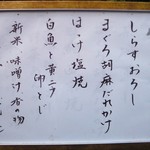 しらすおろし
まぐろ胡麻だれかけ
ほっけ塩焼
白魚と黄ニラ卵とじ
新米 味噌汁 香の物